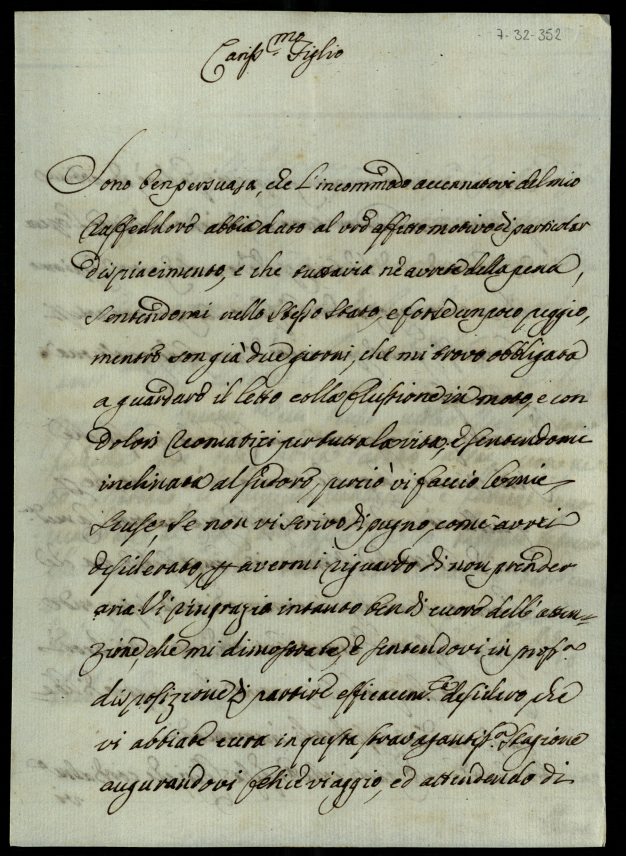 7-32-352
Cariss.mo Figlio
Sono ben persuasa, che l'incommodo accennatovi del mio
Raffeddore abbia dato al vro affetto motivo di particolar
dispiacimento, e che tuttavia n'avrete della pena,
sentendomi nello stesso stato, e forse un poco peggio,
mentre son già due giorni, che mi trovo obbligata
a guardare il letto colla flussione in moto, e con
dolori reomatici per tutta la vita, e sentendomi
inclinata al sudore, perciò vi faccio le mie
scuse, se non vi scrivo di pugno, come avrei
desiderato, p avermi riguardo di non prender
aria. Vi ringrazio intanto ben di cuore dell'atten-
zione, che mi dimostrate, e sentendovi in pross.a
disposizione di partire efficacem.te desidero, che
vi abbiate cura in questa stravagantiss.a stagione
augurandovi felice viaggio, ed attendendo di